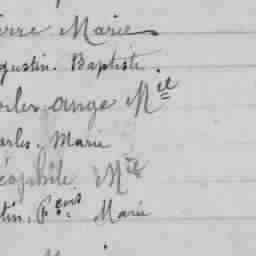 erre Marie
gustin. Baptiste.
ange M^el
arles. Marie
éophile M^ie
tin. Marie